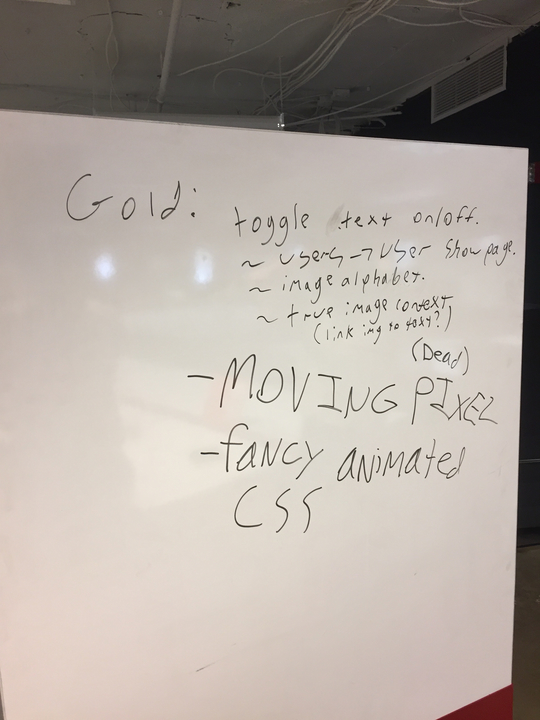 Gold: toggle text on/off.
~ users → User Show page.
~ image alphabet.
~ true image context
(link img to text?)
(Dead)
- MOVING PIXEL
- fancy animated
CSS